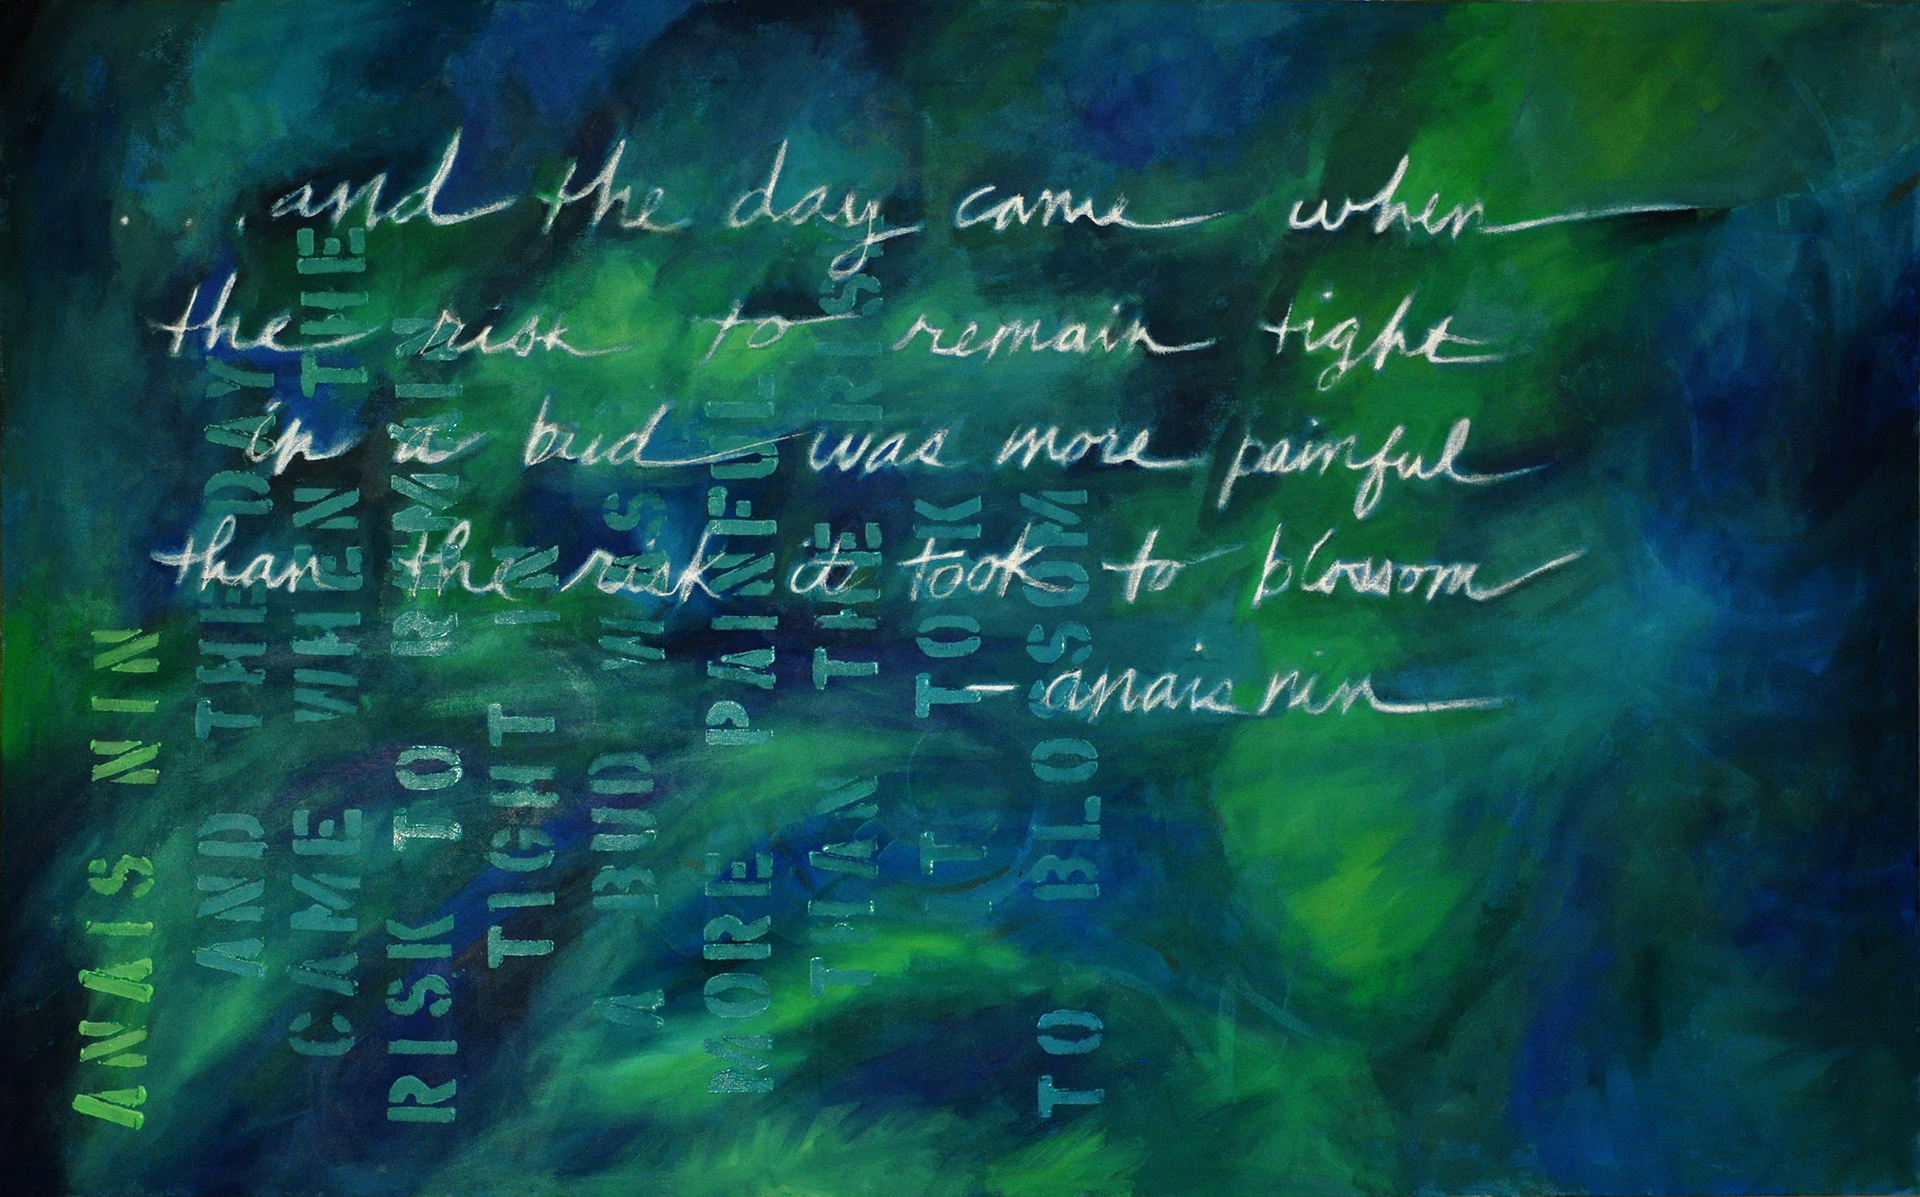 ...and the day came when
the risk to remain tight
in a bud was more painful
than the risk it took to blossom
- anais nin
ANAIS NIN
AND THE DAY
CAME WHEN THE
RISK TO REMAIN
TIGHT IN
A BUD WAS
MORE PAINFUL
THAN THE RISK
IT TOOK
TO BLOSSOM